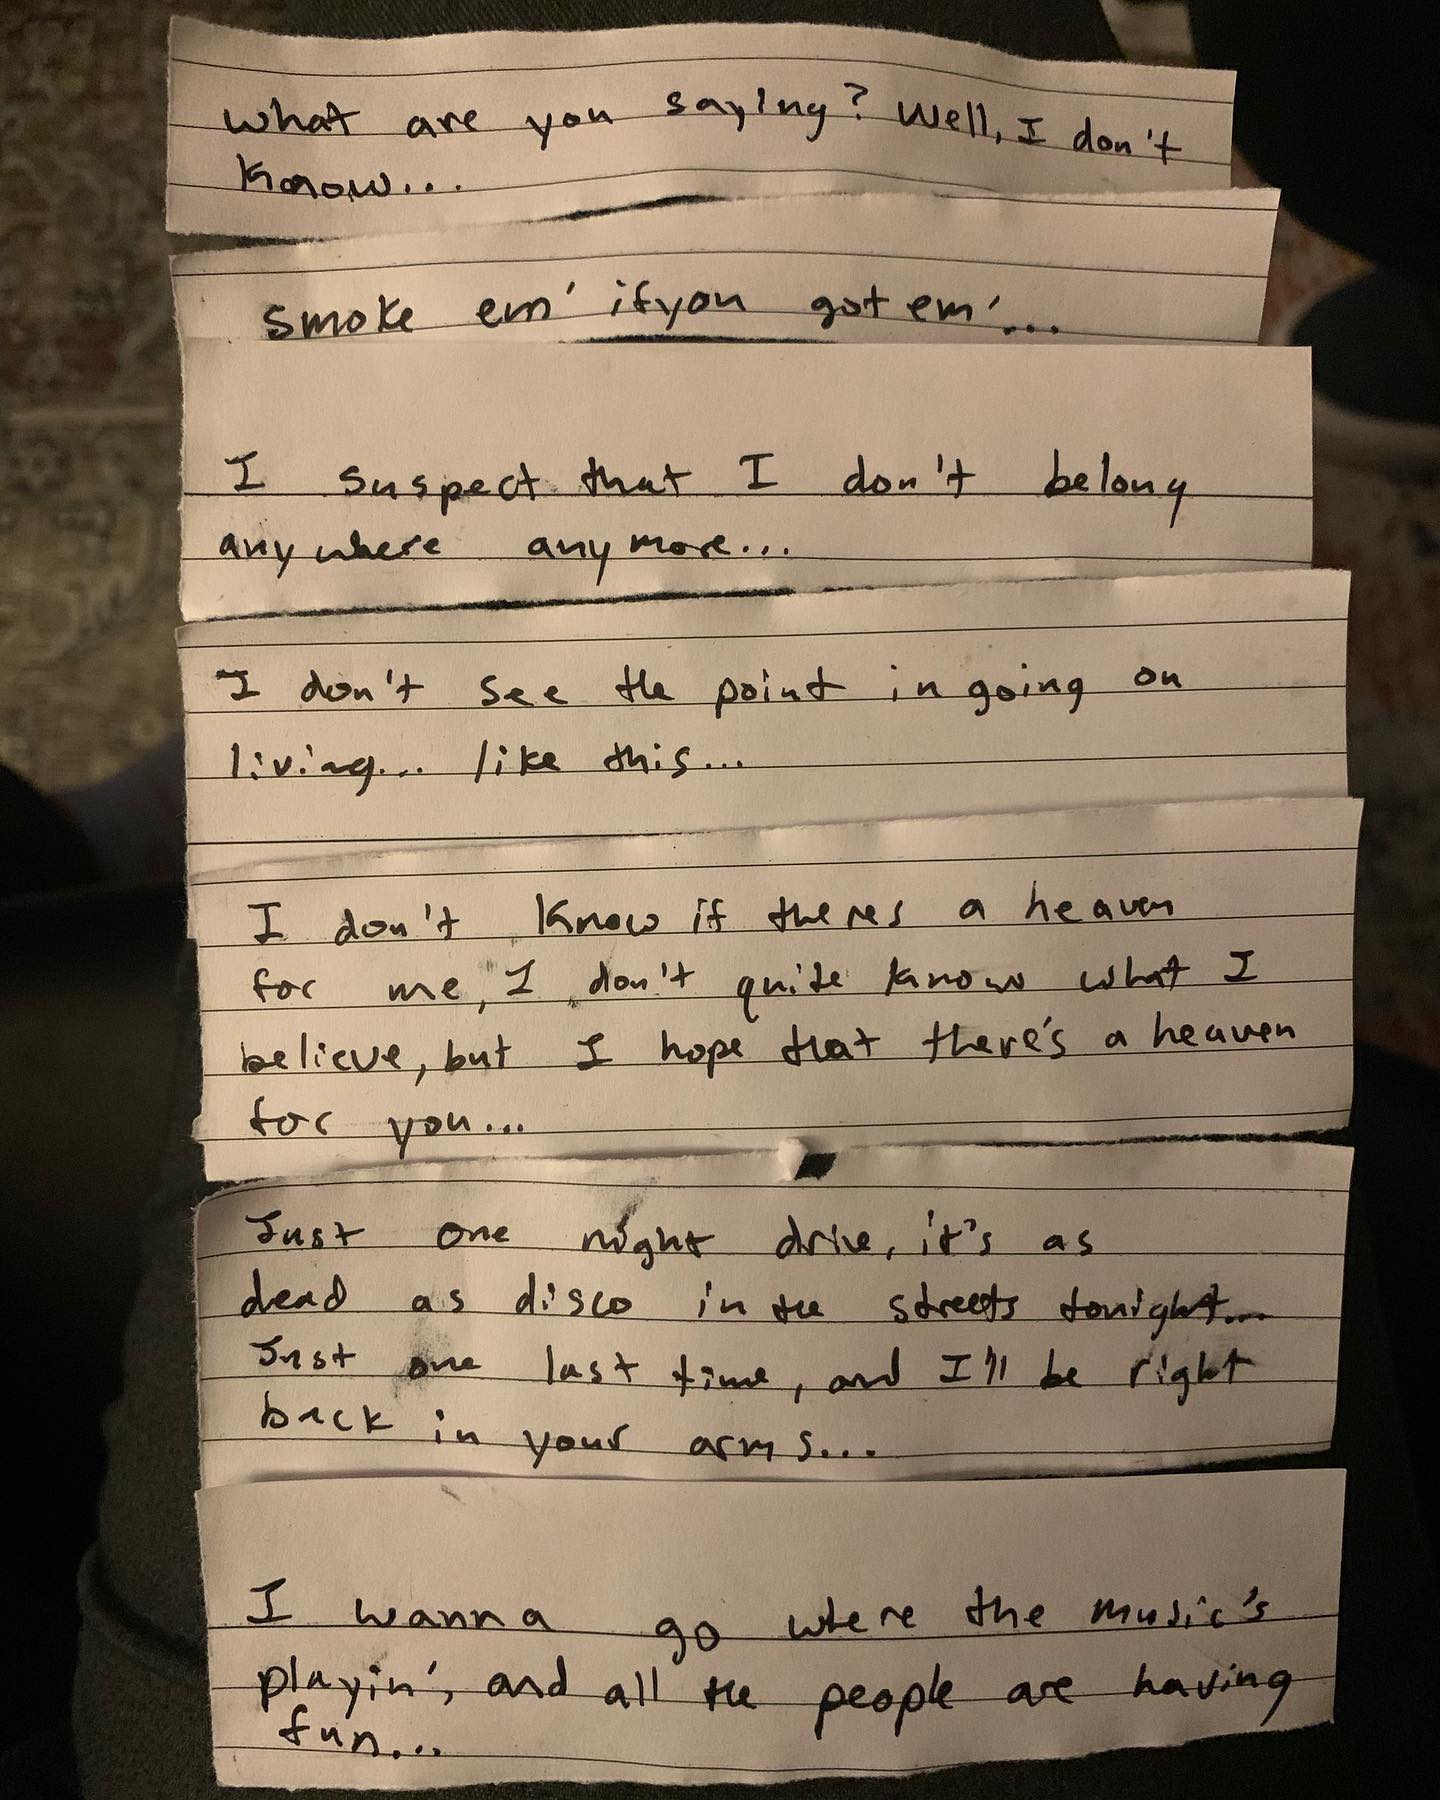 What are you saying? Well, I don't
know...
smoke em' if you got em'...
I suspect that I don't belong
anywhere anymore...
I don't see the point in going on
living... like this...
I don't know if theres a heaven
for me, I don't quite know what I
believe, but I hope that there's a heaven
for you...
Just one night drive, it's as
dead as disco in the streets tonight...
Just one last time, and I'll be right
back in your arms...
I wanna go where the music's
playin', and all the people are having
fun...